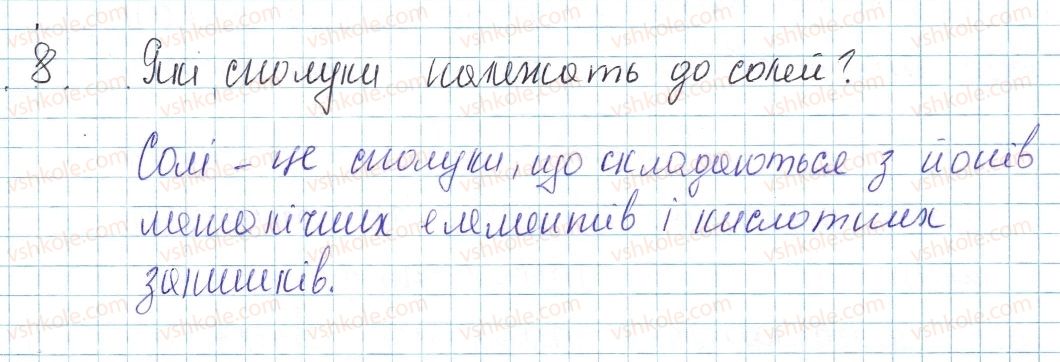 8. Які сполуки належать до солей?
Солі - це сполуки, що складаються з йонів
металічних елементів і кислотних
залишків.